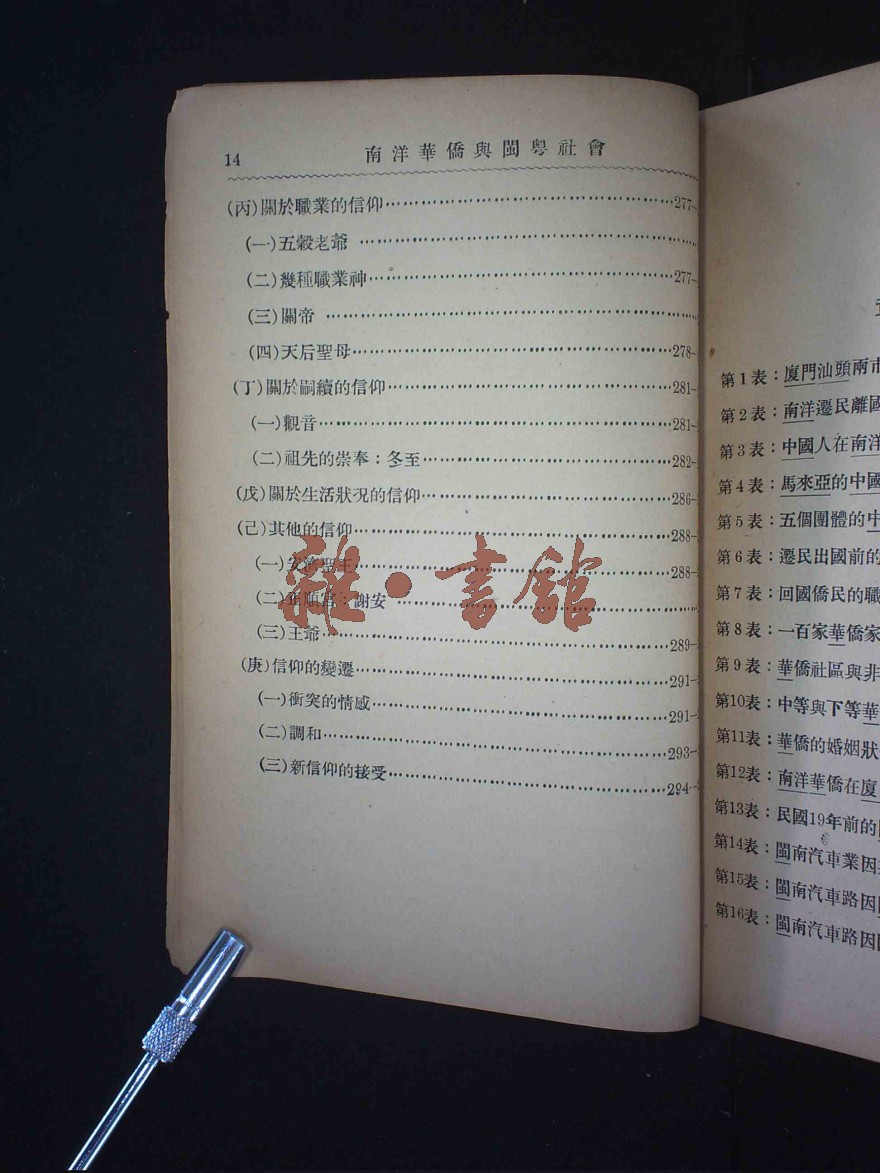 14
南洋華僑與閩粵社會
(丙)關於職業的信仰……277-
(一)五穀老爺……
(二)幾種職業神……277-
(三)關帝……
(四)天后聖母……278-
(丁)關於嗣續的信仰……281-
(一)觀音……281-
(二)祖先的崇奉：冬至……282-
(戊)關於生活狀況的信仰……286-
(己)其他的信仰……288-
(一)安濟聖王……288-
(二)正順宮：謝安……
(三)王爺……289-
(庚)信仰的變遷……291-
(一)衝突的情感……291-
(二)調和……293-
(三)新信仰的接受……294-
雜·書館
第1表：廈門汕頭兩市
第2表：南洋遷民離國
第3表：中國人在南洋
第4表：馬來亞的中國
第5表：五個團體的中
第6表：遷民出國前的
第7表：回國僑民的職
第8表：一百家華僑家
第9表：華僑社區與非
第10表：中等與下等華
第11表：華僑的婚姻狀
第12表：南洋華僑在廈
第13表：民國19年前的
第14表：閩南汽車業因
第15表：閩南汽車路因
第16表：閩南汽車路因